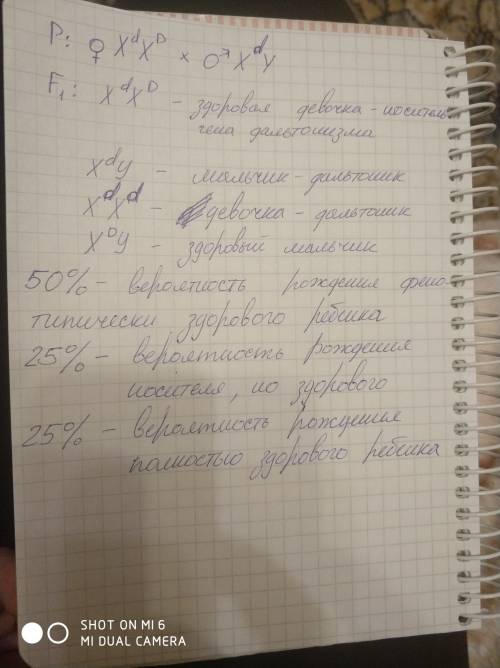 P: ♀ XᵈXᴰ × ♂ XᵈY
F₁: XᵈXᴰ – здоровая девочка – носитель
гена дальтонизма
XᵈY – мальчик – дальтоник
XᵈXᵈ – девочка – дальтоник
XᴰY – здоровый мальчик
50% – вероятность рождения фено-
типически здорового ребенка
25% – вероятность рождения
носителя, но здорового
25% – вероятность рождения
полностью здорового ребенка
SHOT ON MI 6
MI DUAL CAMERA